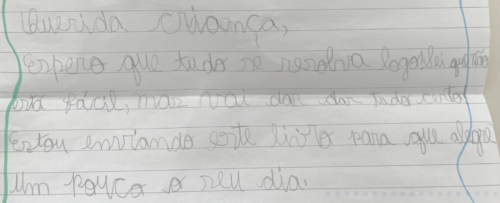 Querida criança,
Espero que tudo se resolva logo. Sei que não
está fácil, mas vai dar dar tudo certo!
Estou enviando este livro para que alegre
um pouco o seu dia.